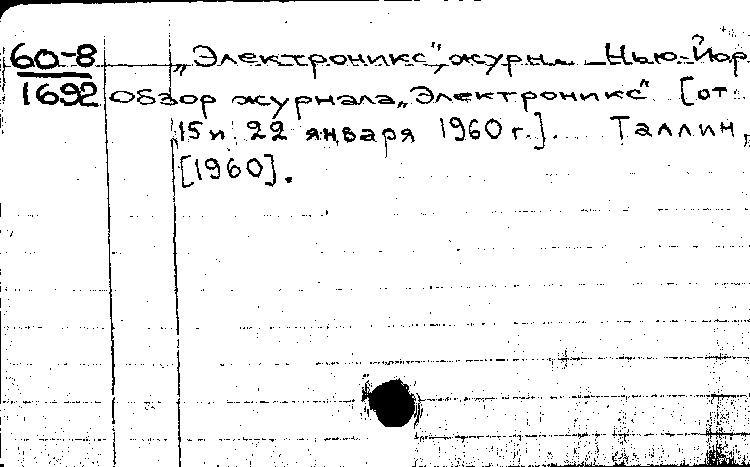 60-8 „Электроникс", журн. Нью-Йор
1692 Обзор журнала „Электроникс" [от
15 и 22 января 1960 г.]. Таллин,
[1960].